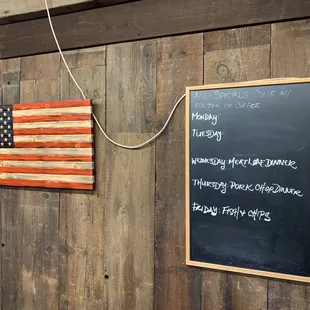 ALL SPECIALS COME W/
ICE TEA OR COFFEE
MONDAY:
TUESDAY:
WEDNESDAY: MEATLOAF DINNER
THURSDAY: PORK CHOP DINNER
FRIDAY: FISH & CHIPS